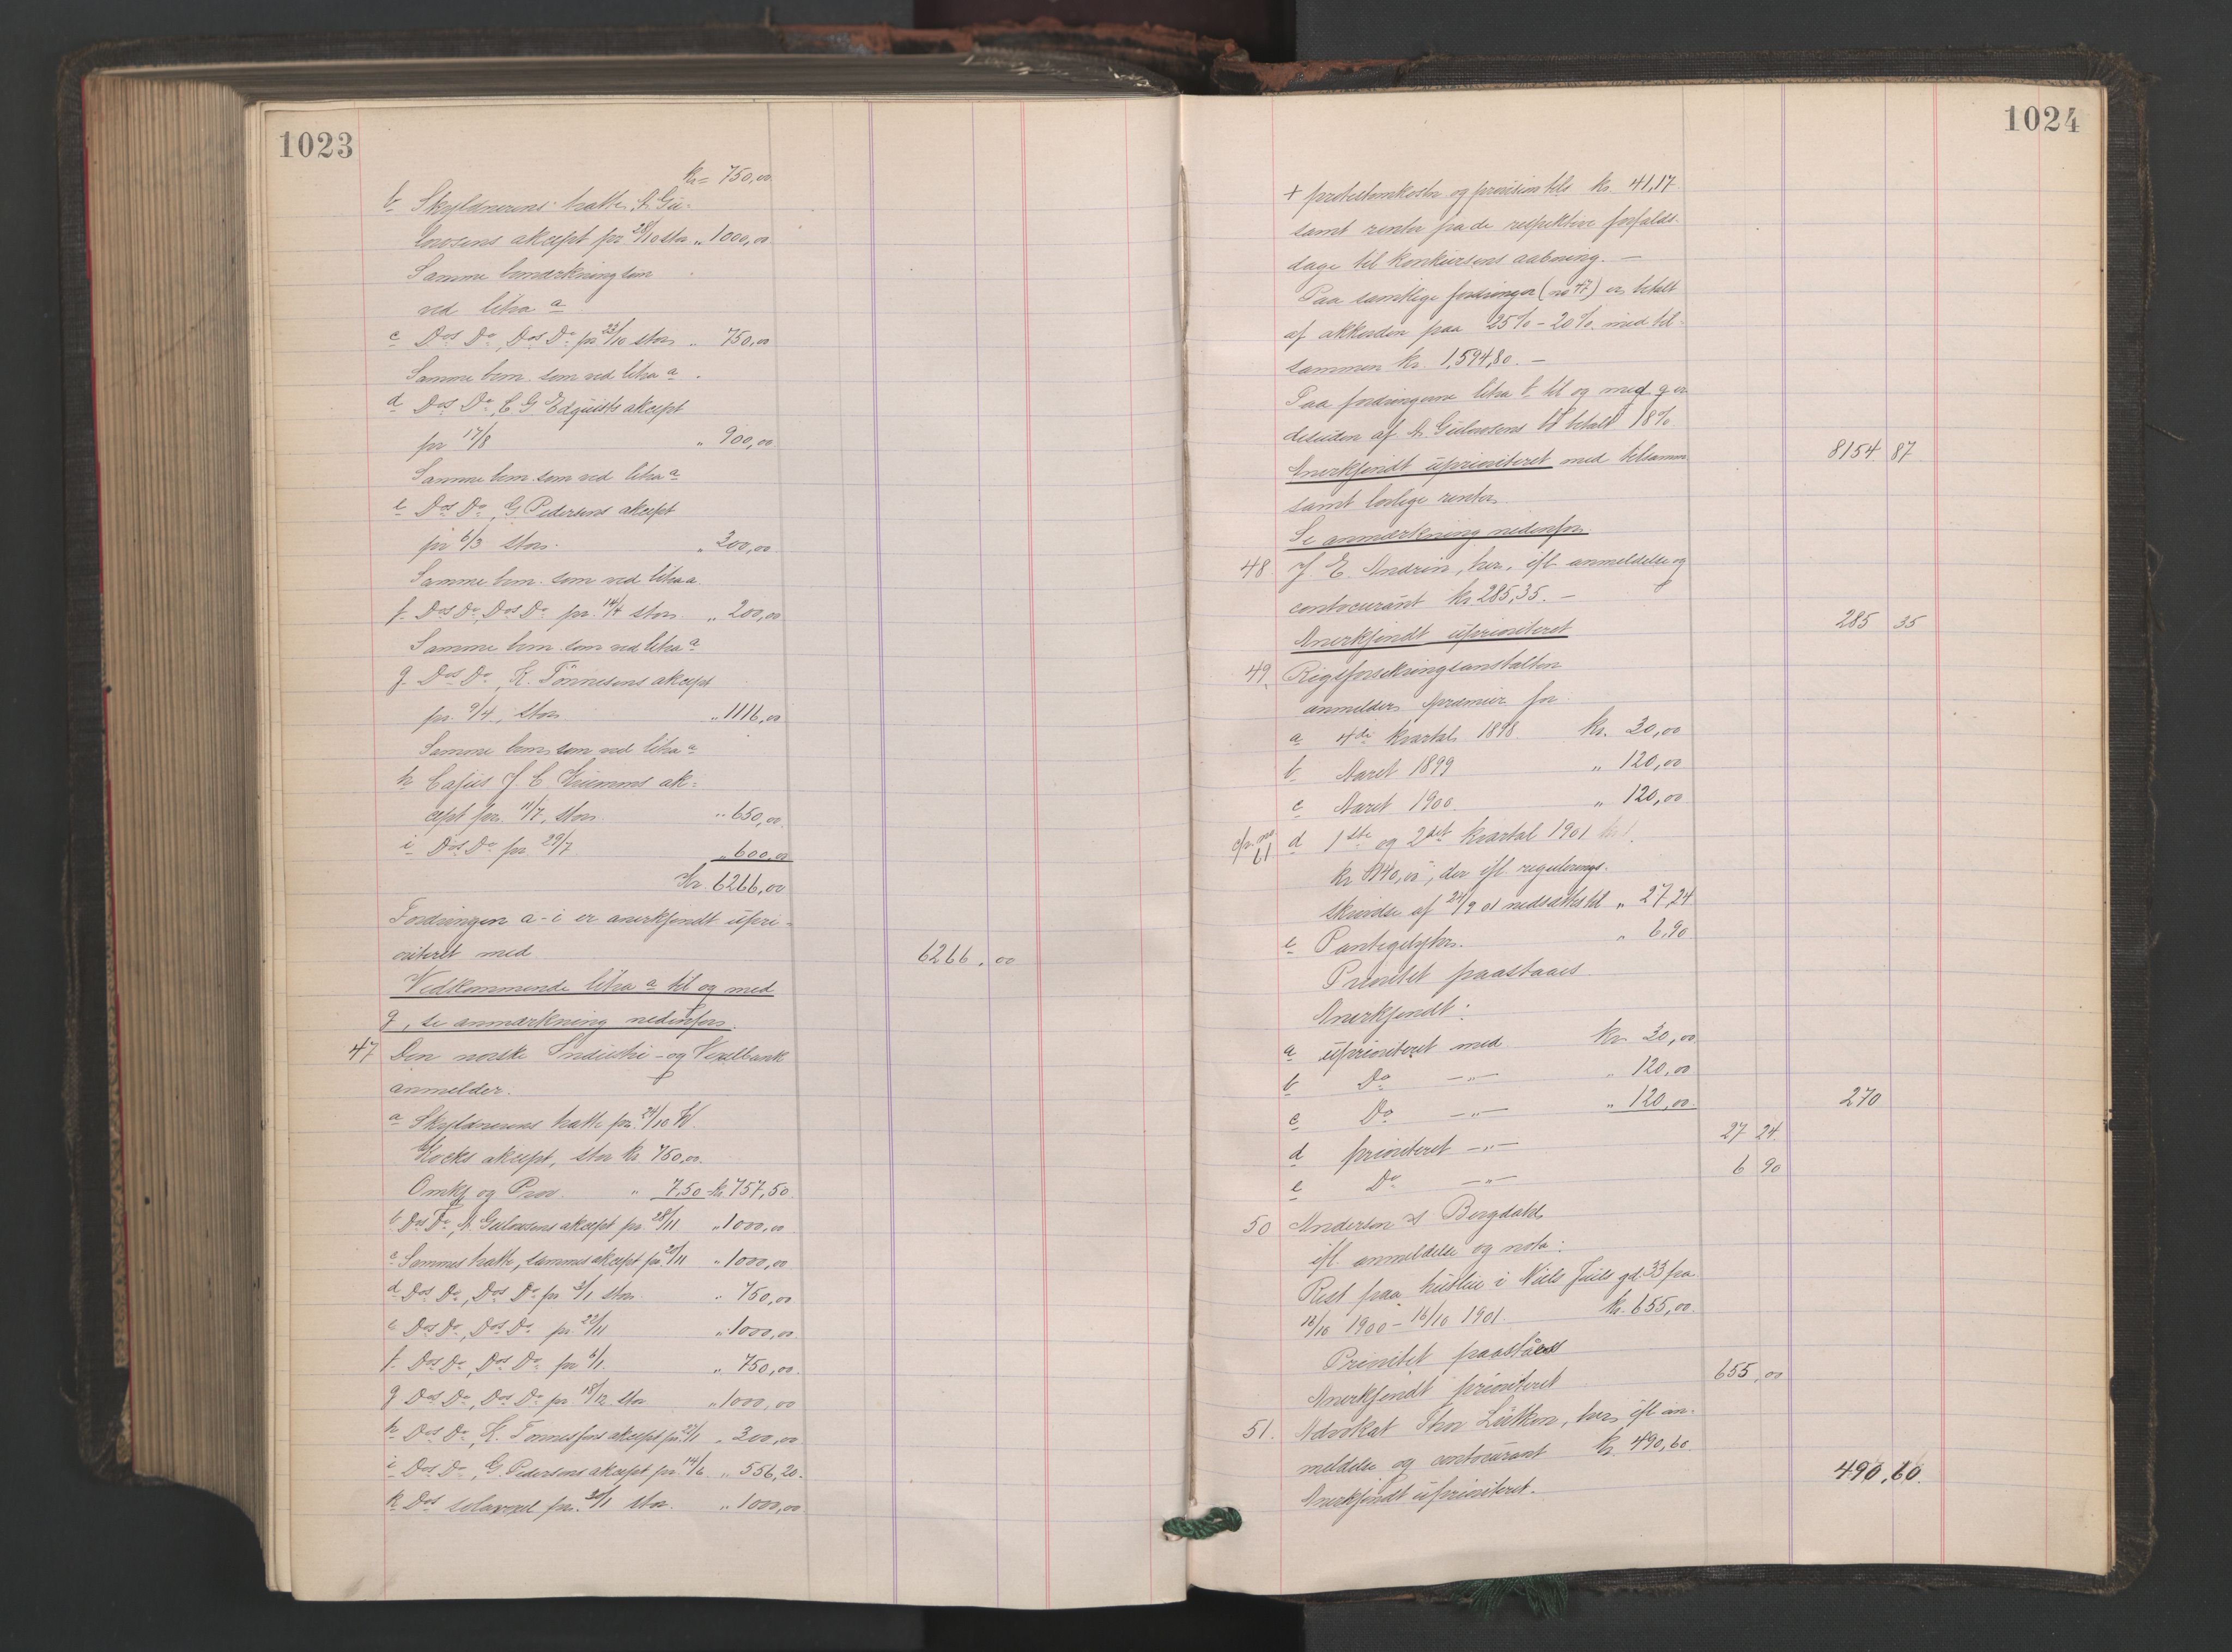 1023
Kr = 750,00
b Skyldnerens tratte, A. Gu-
lovsens akcept pr 28/10 stor " 1000,00
Samme bemærkning som
ved litra a
c Dos Do, Dos Do pr 23/10 stor " 750,00
Samme bem. som ved litra a.
d Dos Do, C. G Edquists akcept
pr 17/8 " 900,00
Samme bem. som ved litra a
e Dos Do, G Pedersens akcept
pr 6/3 stor. " 300,00
Samme bem. som ved litra a
f Dos Do Dos Do pr. 14/4 stor. " 200,00
Samme bem. som ved litra a
g Dos Do, K. Tönnesens akcept
pr. 9/4, stor " 1116,00
Samme bem. som ved litra a
h J. C. ak-
cept pr. 11/7, stor. " 650,00
i Dos Do pr. 29/7 " 600,00
Kr 6266,00
Fordringen a - i er anerkjendt upri-
oriteret med 6266,00
Vedkommende litra a til og med
g, se anmærkning nedenfor.
47 Den norske Industri- og Vexelbank
anmelder.
a Skyldnerens tratte pr. 24/10
Kocks akcept, stor kr. 750,00
Omk. og Prov. " 7,50 kr. 757,50
b Dos Do, A. Gulovsens akcept pr 28/11 " 1000,00
c Sammes tratte, sammes akcept pr. 29/11 " 1000,00
d Dos Do, Dos Do pr 3/1 stor. " 750,00
e Dos Do, Dos Do pr. 22/11 " 1000,00
f Dos Do, Dos Do pr 6/1. " 750,00
g Dos Do, Dos Do pr 18/12 stor " 1000,00
h Dos Do, K. Tönnesens akcept pr. 27/1 " 300,00
i Dos Do, G. Pedersens akcept pr. 14/6 " 556,20
k Dos solavexel pr. 30/1 stor. " 1000,00
1024
+ protestomkostn og provision tils kr. 41,17
samt renter fra de respektive forfalds-
dage til konkursens aabning. —
Paa samtlige fordringer (no 47) er betalt
af akkorden paa 25% - 20% med til-
sammen kr. 1,594,80. —
Paa fordringerne litra b til og med g er
desuden af A. Gulovsens bo betalt 18%
Anerkjendt uprioriteret med tilsammen 8154 87
samt lovlige renter.
Se anmærkning nedenfor.
48 J. E. Andrén, her, ifl. anmeldelse og
contocurant kr 285,35. —
Anerkjendt uprioriteret 285 35
49. Rigsforsikringsanstalten
anmelder præmier for
a 4de kvartal 1898. kr. 30,00
b Aaret 1899 " 120,00
c Aaret 1900. " 120,00
cfr. no 61 d 1ste og 2det kvartal 1901
kr 140,00, der ifl. regulerings-
skrivelse af 24/9 01 nedsættes til " 27,24
e Pantegebyhr. " 6,90
Prioritet paastaaes
Anerkjendt:
a uprioriteret med kr 30,00
b Do —"— " 120,00
c Do —"— " 120,00 270
d prioriteret —"— 27 24
e Do —"— 6 90
50 Andersen & Bergdahl
ifl. anmeldelse og nota:
Rest paa husleie i Niels Juels gd. 33 fra
16/10 1900 - 16/10 1901. kr. 655,00
Prioritet paastaaes
Anerkjendt prioriteret 655,00
51. Advokat Thor Lütken, her, ifl. an-
meldelse og contocurant kr. 490,60
Anerkjendt uprioriteret. 490,60